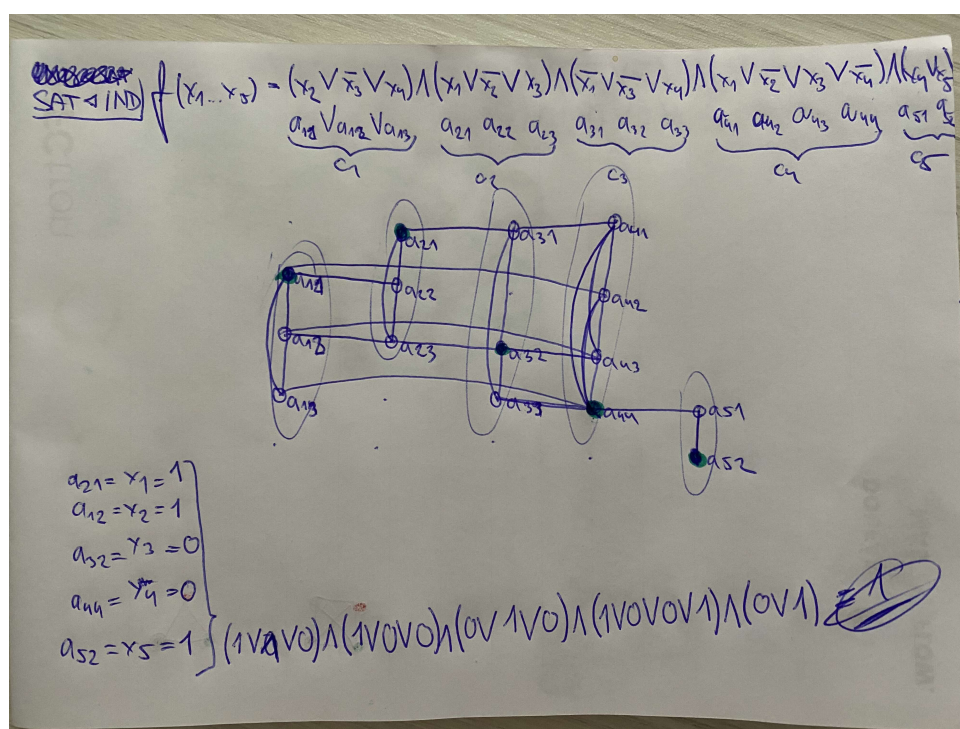 SAT ◁ IND f(x₁...x₅) = (x₂ ∨ x̄₃ ∨ x₄) ∧ (x₁ ∨ x̄₂ ∨ x₃) ∧ (x̄₁ ∨ x̄₃ ∨ x₄) ∧ (x₁ ∨ x̄₂ ∨ x₃ ∨ x̄₄) ∧ (x₄ ∨ x₅
∨ ∨ a₁₃ a₂₁ a₂₂ a₂₃ a₃₁ a₃₂ a₃₃ a₄₁ a₄₂ a₄₃ a₄₄ a₅₁
C₁ C₂ C₃ C₄ C₅
a₂₁ a₃₁ a₄₁
a₂₂ a₄₂
a₂₃ a₃₂ a₄₃
a₁₃ a₃₃ a₄₄ a₅₁
a₅₂
a₂₁ = x₁ = 1
a₁₂ = x₂ = 1
a₃₂ = x₃ = 0
a₄₄ = x₄ = 0
a₅₂ = x₅ = 1 } (1∨1∨0)∧(1∨0∨0)∧(0∨1∨0)∧(1∨0∨0∨1)∧(0∨1) = 1